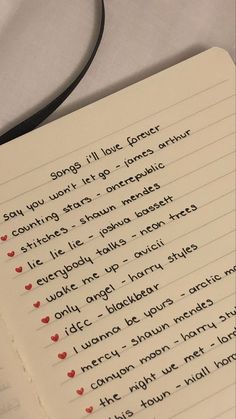 songs i'll love forever
say you won't let go - james arthur
counting stars - onerepublic
stitches - shawn mendes
lie lie lie - joshua bassett
everybody talks - neon trees
wake me up - avicii
only angel - harry styles
idfc - blackbear
I wanna be yours - arctic mo
mercy - shawn mendes
canyon moon - harry sty
the night we met - lord
this town - niall hor